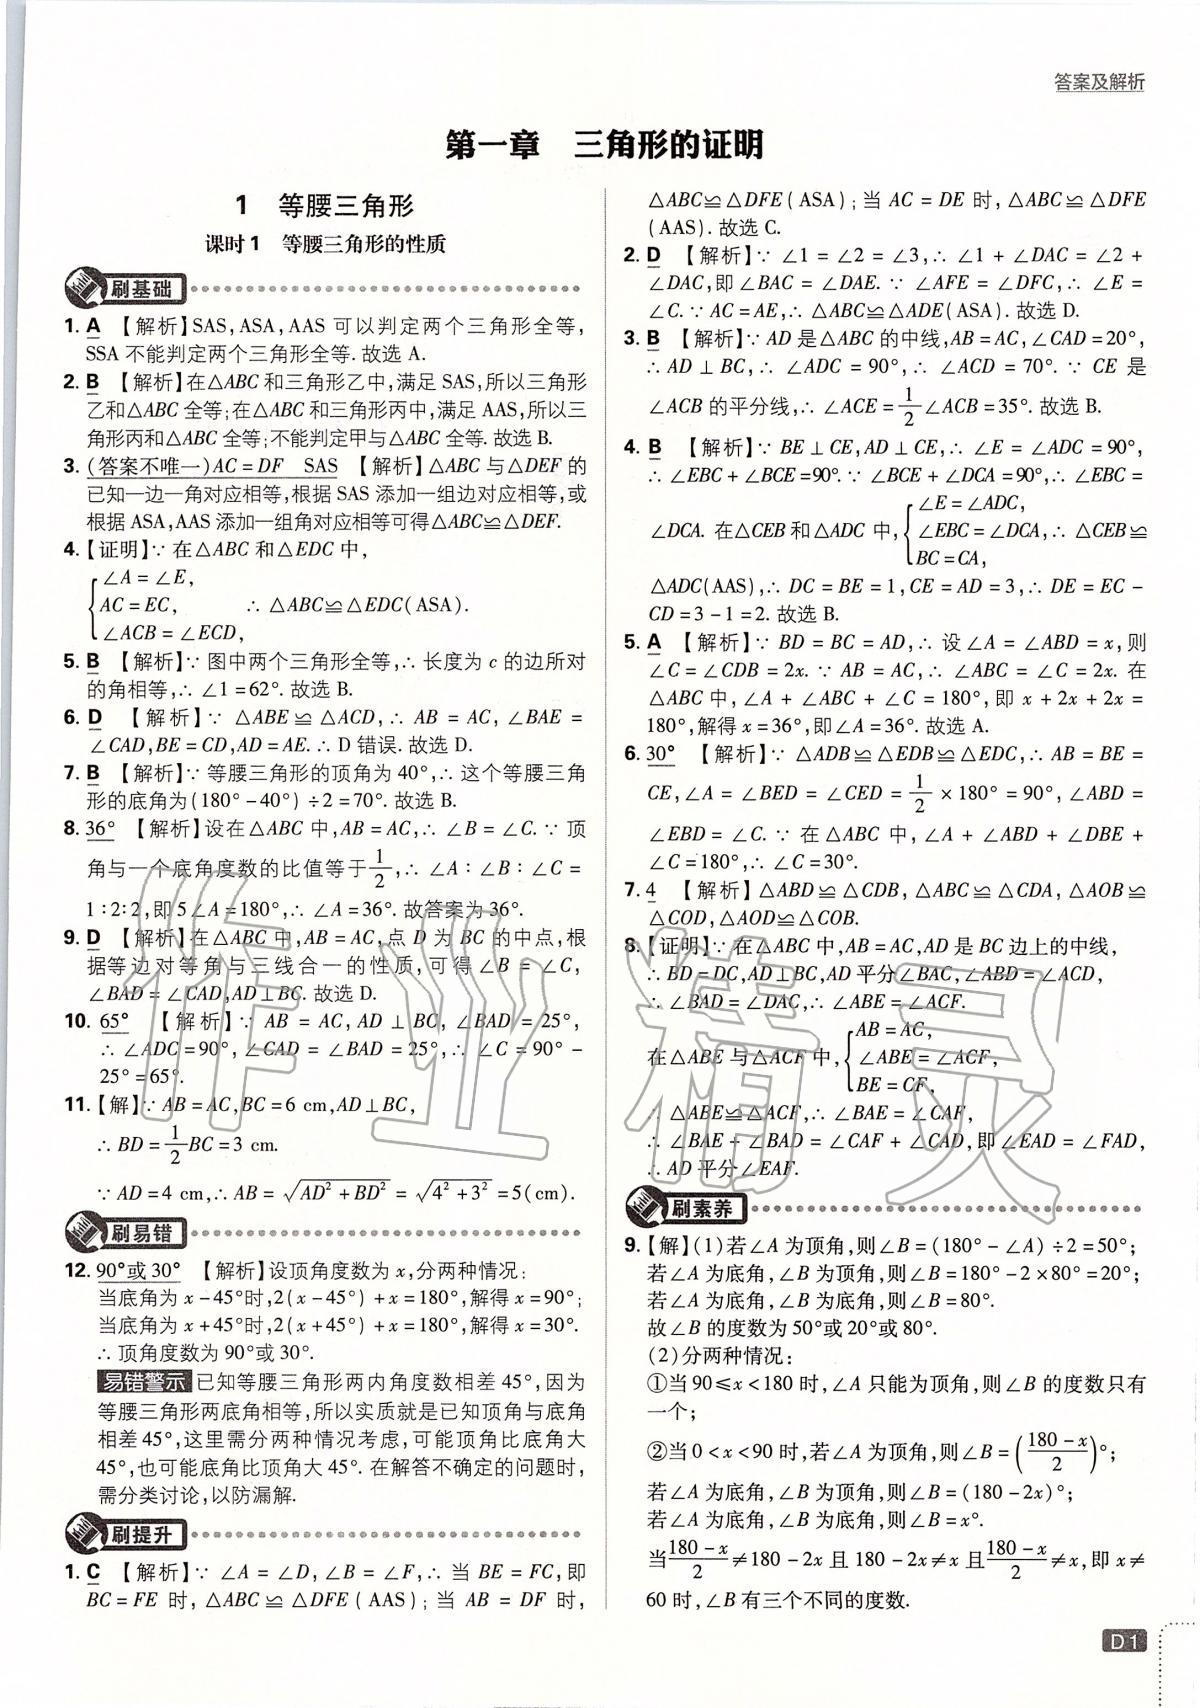 答案及解析
第一章　三角形的证明
1　等腰三角形
课时1　等腰三角形的性质
刷基础
1. A 【解析】SAS,ASA,AAS 可以判定两个三角形全等,
SSA 不能判定两个三角形全等. 故选 A.
2. B 【解析】在△ABC 和三角形乙中,满足 SAS,所以三角形
乙和△ABC 全等;在△ABC 和三角形丙中,满足 AAS,所以三
角形丙和△ABC 全等;不能判定甲与△ABC 全等. 故选 B.
3. (答案不唯一)AC=DF　SAS 【解析】△ABC 与△DEF 的
已知一边一角对应相等,根据 SAS 添加一组边对应相等,或
根据 ASA,AAS 添加一组角对应相等可得△ABC≌△DEF.
4.【证明】∵ 在△ABC 和△EDC 中,
∠A = ∠E,
AC = EC,　　∴ △ABC≌△EDC(ASA).
∠ACB = ∠ECD,
5. B 【解析】∵ 图中两个三角形全等,∴ 长度为 c 的边所对
的角相等,∴ ∠1 = 62°. 故选 B.
6. D 【解析】∵ △ABE≌△ACD,∴ AB = AC, ∠BAE =
∠CAD,BE = CD,AD = AE. ∴ D 错误. 故选 D.
7. B 【解析】∵ 等腰三角形的顶角为 40°,∴ 这个等腰三角
形的底角为(180° -40°) ÷2 = 70°. 故选 B.
8. 36° 【解析】设在△ABC 中,AB = AC,∴ ∠B = ∠C. ∵ 顶
角与一个底角度数的比值等于1/2,∴ ∠A∶∠B∶∠C =
1∶2∶2,即 5∠A = 180°,∴ ∠A = 36°. 故答案为 36°.
9. D 【解析】在△ABC 中,AB = AC,点 D 为 BC 的中点,根
据等边对等角与三线合一的性质,可得∠B = ∠C,
∠BAD = ∠CAD,AD⊥BC. 故选 D.
10. 65° 【解析】∵ AB = AC, AD ⊥ BC, ∠BAD = 25°,
∴ ∠ADC = 90°, ∠CAD = ∠BAD = 25°, ∴ ∠C = 90° -
25° = 65°.
11.【解】∵ AB = AC,BC = 6 cm,AD⊥BC,
∴ BD = 1/2 BC = 3 cm.
∵ AD = 4 cm,∴ AB = √(AD² + BD²) = √(4² + 3²) = 5(cm).
刷易错
12. 90°或 30° 【解析】设顶角度数为 x,分两种情况:
当底角为 x - 45°时,2(x - 45°) + x = 180°,解得 x = 90°;
当底角为 x + 45°时,2(x + 45°) + x = 180°,解得 x = 30°.
∴ 顶角度数为 90°或 30°.
易错警示 已知等腰三角形两内角度数相差 45°,因为
等腰三角形两底角相等,所以实质就是已知顶角与底角
相差 45°,这里需分两种情况考虑,可能顶角比底角大
45°,也可能底角比顶角大 45°. 在解答不确定的问题时,
需分类讨论,以防漏解.
刷提升
1. C 【解析】∵ ∠A = ∠D, ∠B = ∠F, ∴ 当 BE = FC, 即
BC = FE 时, △ABC ≌ △DFE (AAS); 当 AB = DF 时,
△ABC≌△DFE(ASA);当 AC = DE 时,△ABC≌△DFE
(AAS). 故选 C.
2. D 【解析】∵ ∠1 = ∠2 = ∠3,∴ ∠1 + ∠DAC = ∠2 +
∠DAC,即∠BAC = ∠DAE. ∵ ∠AFE = ∠DFC,∴ ∠E =
∠C. ∵ AC = AE,∴ △ABC≌△ADE(ASA). 故选 D.
3. B 【解析】∵ AD 是△ABC 的中线,AB = AC,∠CAD = 20°,
∴ AD ⊥ BC,∴ ∠ADC = 90°,∴ ∠ACD = 70°. ∵ CE 是
∠ACB 的平分线,∴ ∠ACE = 1/2 ∠ACB = 35°. 故选 B.
4. B 【解析】∵ BE⊥CE,AD⊥CE,∴ ∠E = ∠ADC = 90°,
∴ ∠EBC + ∠BCE = 90°. ∵ ∠BCE + ∠DCA = 90°,∴ ∠EBC =
∠E = ∠ADC,
∠DCA. 在△CEB 和△ADC 中, ∠EBC = ∠DCA,∴ △CEB≌
BC = CA,
△ADC(AAS),∴ DC = BE = 1,CE = AD = 3,∴ DE = EC -
CD = 3 - 1 = 2. 故选 B.
5. A 【解析】∵ BD = BC = AD,∴ 设∠A = ∠ABD = x,则
∠C = ∠CDB = 2x. ∵ AB = AC,∴ ∠ABC = ∠C = 2x. 在
△ABC 中,∠A + ∠ABC + ∠C = 180°,即 x + 2x + 2x =
180°,解得 x = 36°,即∠A = 36°. 故选 A.
6. 30° 【解析】∵ △ADB≌△EDB≌△EDC,∴ AB = BE =
CE,∠A = ∠BED = ∠CED = 1/2 × 180° = 90°, ∠ABD =
∠EBD = ∠C. ∵ 在△ABC 中,∠A + ∠ABD + ∠DBE +
∠C = 180°,∴ ∠C = 30°.
7. 4 【解析】△ABD≌△CDB, △ABC≌△CDA, △AOB≌
△COD,△AOD≌△COB.
8.【证明】∵ 在△ABC 中,AB = AC,AD 是 BC 边上的中线,
∴ BD = DC,AD⊥BC,AD 平分∠BAC,∠ABD = ∠ACD,
∴ ∠BAD = ∠DAC,∴ ∠ABE = ∠ACF.
AB = AC,
在△ABE 与△ACF 中, ∠ABE = ∠ACF,
BE = CF,
∴ △ABE≌△ACF,∴ ∠BAE = ∠CAF,
∴ ∠BAE + ∠BAD = ∠CAF + ∠CAD,即∠EAD = ∠FAD,
∴ AD 平分∠EAF.
刷素养
9.【解】(1)若∠A 为顶角,则∠B = (180° - ∠A) ÷2 = 50°;
若∠A 为底角,∠B 为顶角,则∠B = 180° - 2 × 80° = 20°;
若∠A 为底角,∠B 为底角,则∠B = 80°.
故∠B 的度数为 50°或 20°或 80°.
(2)分两种情况:
①当 90≤x < 180 时,∠A 只能为顶角,则∠B 的度数只有
一个;
②当 0 < x < 90 时,若∠A 为顶角,则∠B = ((180 - x)/2)°;
若∠A 为底角,∠B 为顶角,则∠B = (180 - 2x)°;
若∠A 为底角,∠B 为底角,则∠B = x°.
当(180 - x)/2 ≠ 180 - 2x 且 180 - 2x ≠ x 且(180 - x)/2 ≠ x,即 x ≠
60 时,∠B 有三个不同的度数.
D1
作业精灵